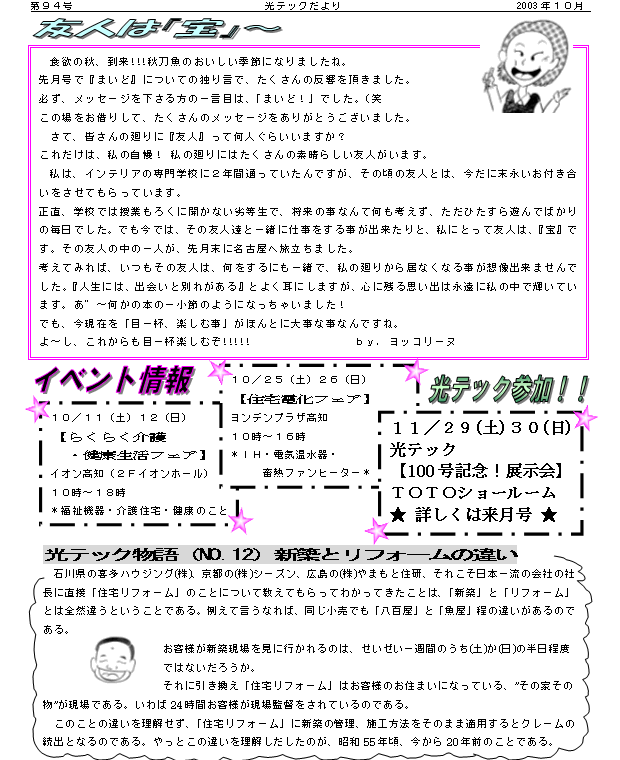 第９４号　光テックだより　2003年１０月
友人は「宝」～
食欲の秋、到来!!!秋刀魚のおいしい季節になりましたね。
先月号で『まいど』についての独り言で、たくさんの反響を頂きました。
必ず、メッセージを下さる方の一言目は、「まいど！」でした。(笑
この場をお借りして、たくさんのメッセージをありがとうございました。
さて、皆さんの廻りに『友人』って何人ぐらいいますか？
これだけは、私の自慢！ 私の廻りにはたくさんの素晴らしい友人がいます。
私は、インテリアの専門学校に２年間通っていたんですが、その頃の友人とは、今だに末永いお付き合
いをさせてもらっています。
正直、学校では授業もろくに聞かない劣等生で、将来の事なんて何も考えず、ただひたすら遊んでばかり
の毎日でした。でも今では、その友人達と一緒に仕事をする事が出来たりと、私にとって友人は、『宝』で
す。その友人の中の一人が、先月末に名古屋へ旅立ちました。
考えてみれば、いつもその友人は、何をするにも一緒で、私の廻りから居なくなる事が想像出来ませんで
した。『人生には、出会いと別れがある』とよく耳にしますが、心に残る思い出は永遠に私の中で輝いてい
ます。あ゛～何かの本の一小節のようになっちゃいました！
でも、今現在を「目一杯、楽しむ事」がほんとに大事な事なんですね。
よ～し、これからも目一杯楽しむぞ!!!!!　by．ヨッコリーヌ
イベント情報
１０／１１（土）１２（日）
【らくらく介護
・健康生活フェア】
イオン高知（２Ｆイオンホール）
１０時～１８時
*福祉機器・介護住宅・健康のこと
１０／２５（土）２６（日）
【住宅電化フェア】
ヨンデンプラザ高知
１０時～１６時
＊ＩＨ・電気温水器・
蓄熱ファンヒーター＊
光テック参加！！
１１／２９(土)３０(日)
光テック
【100号記念！展示会】
ＴＯＴＯショールーム
★ 詳しくは来月号 ★
光テック物語（NO.12）新築とリフォームの違い
石川県の喜多ハウジング(株)、京都の(株)シーズン、広島の(株)やまもと住研、それこそ日本一流の会社の社
長に直接「住宅リフォーム」のことについて教えてもらってわかってきたことは、「新築」と「リフォーム」
とは全然違うということである。例えて言うなれば、同じ小売でも「八百屋」と「魚屋」程の違いがあるので
ある。
お客様が新築現場を見に行かれるのは、せいぜい一週間のうち(土)か(日)の半日程度
ではないだろうか。
それに引き換え「住宅リフォーム」はお客様のお住まいになっている、”その家その
物”が現場である。いわば24時間お客様が現場監督をされているのである。
このことの違いを理解せず、「住宅リフォーム」に新築の管理、施工方法をそのまま適用するとクレームの
続出となるのである。やっとこの違いを理解しだしたのが、昭和55年頃、今から20年前のことである。